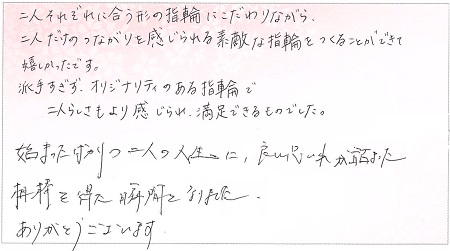 二人それぞれに合う形の指輪にこだわりながら、
二人だけのつながりを感じられる素敵な指輪をつくることができて
嬉しかったです。
派手すぎず、オリジナリティのある指輪で
二人らしさもより感じられ、満足できるものでした。
始まったばかりの二人の人生に、良い思い出が詰まった
指輪を得た瞬間となりました。
ありがとうございます